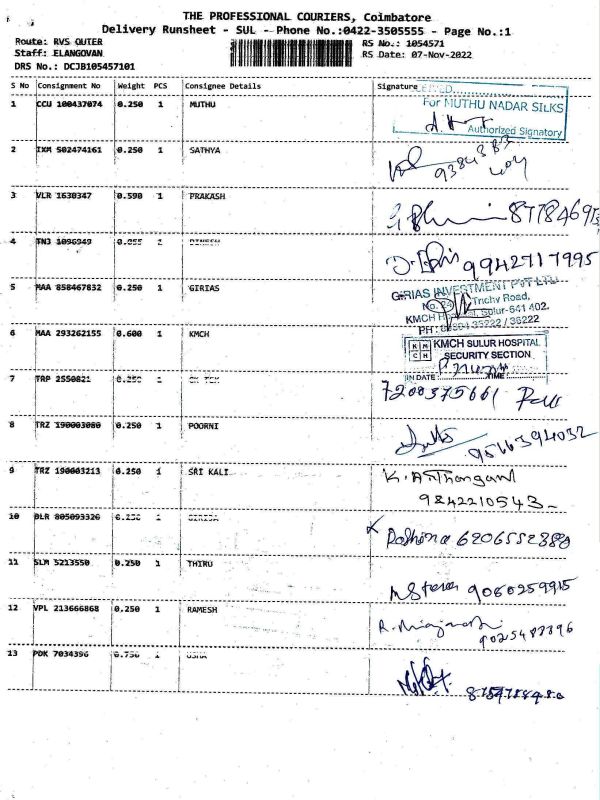 THE PROFESSIONAL COURIERS, Coimbatore
Delivery Runsheet - SUL - Phone No.:0422-3505555 - Page No.:1
Route: RVS OUTER
Staff: ELANGOVAN
DRS No.: DCJB105457101
RS No.: 1054571
RS Date: 07-Nov-2022
S No Consignment No Weight PCS Consignee Details Signature
1 CCU 100437074 0.250 1 MUTHU
For MUTHU NADAR SILKS
Authorized Signatory
2 IXM 502474161 0.250 1 SATHYA
3 VLR 1630347 0.590 1 PRAKASH
4 TNJ 1096949 1 DINESH
9942717995
5 MAA 858467832 0.250 1 GIRIAS
GIRIAS INVESTMENT PVT LTD
Trichy Road,
Sulur-641 402.
6 MAA 293262155 0.600 1 KMCH
KMCH SULUR HOSPITAL
SECURITY SECTION
IN DATE: TIME:
7 TRP 2550821 0.250 1
7200375661
8 TRZ 190003080 0.250 1 POORNI
9566394032
9 TRZ 190003213 0.250 1 SRI KALI
9842210543
10 BLR 805093326 1
6206552880
11 SLM 5213550 0.250 1 THIRU
9060259915
12 VPL 213666868 0.250 1 RAMESH
13 PDK 7034396 0.750 1 USHA